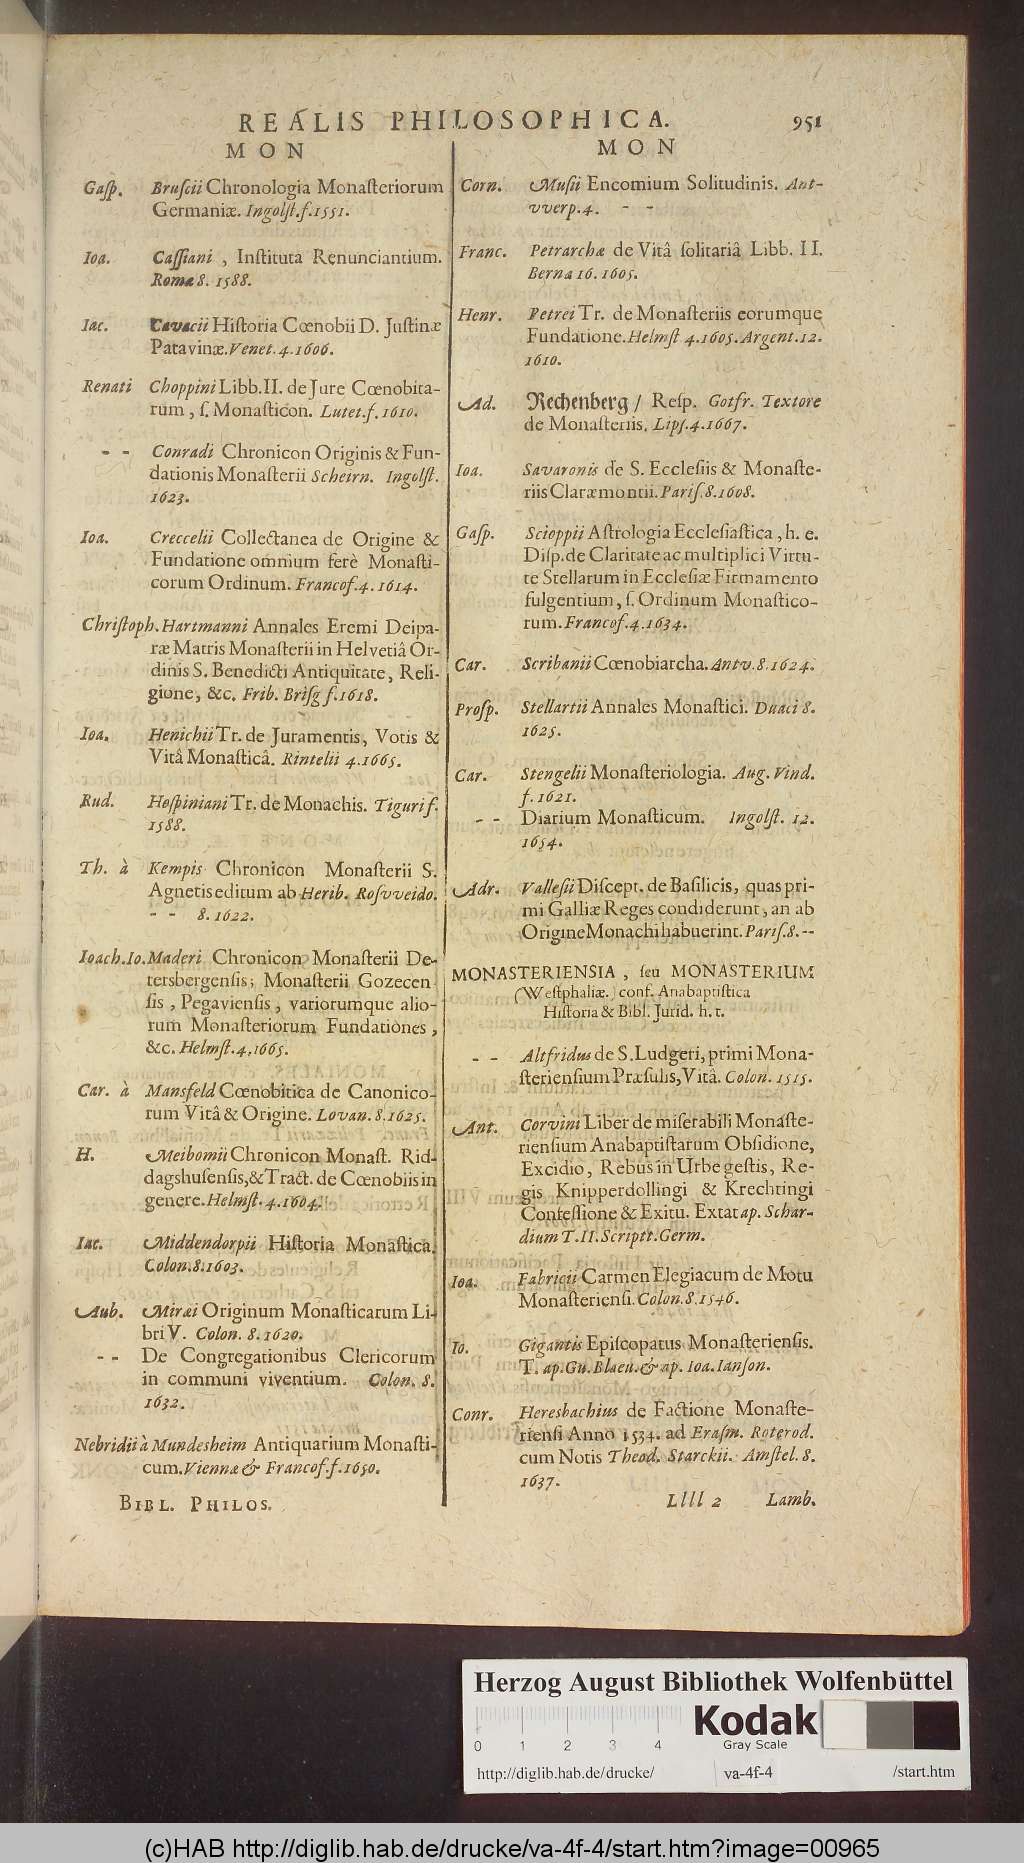 REALIS PHILOSOPHICA. 951
MON
Gaſp. Bruſcii Chronologia Monaſteriorum
Germaniæ. Ingolſt.f.1551.
Ioa. Caſſiani , Inſtituta Renunciantium.
Romæ 8. 1588.
Iac. Cavacii Hiſtoria Cœnobii D. Juſtinæ
Patavinæ.Venet.4.1606.
Renati Choppini Libb.II. de Jure Cœnobita-
rum , ſ. Monaſticon. Lutet.f.1610.
- - Conradi Chronicon Originis & Fun-
dationis Monaſterii Scheirn. Ingolſt.
1623.
Ioa. Creccelii Collectanea de Origine &
Fundatione omnium ferè Monaſti-
corum Ordinum. Francof.4.1614.
Chriſtoph.Hartmanni Annales Eremi Deipa-
ræ Matris Monaſterii in Helvetiâ Or-
dinis S. Benedicti Antiquitate, Reli-
gione, &c. Frib. Briſg f.1618.
Ioa. Henichii Tr. de Juramentis, Votis &
Vitâ Monaſticâ. Rintelii 4.1665.
Rud. Hoſpiniani Tr. de Monachis. Tiguri f.
1588.
Th. à Kempis Chronicon Monaſterii S.
Agnetis editum ab Herib. Roſvveido.
- - 8. 1622.
Ioach.Io.Maderi Chronicon Monaſterii De-
tersbergenſis; Monaſterii Gozecen
ſis , Pegavienſis , variorumque alio-
rum Monaſteriorum Fundationes ,
&c. Helmſt.4.1665.
Car. à Mansfeld Cœnobitica de Canonico-
rum Vitâ & Origine. Lovan.8.1625.
H. Meibomii Chronicon Monaſt. Rid-
dagshuſenſis,&Tract. de Cœnobiis in
genere.Helmſt.4.1604.
Iac. Middendorpii Hiſtoria Monaſtica.
Colon.8.1603.
Aub. Miræi Originum Monaſticarum Li-
bri V. Colon. 8. 1620.
- - De Congregationibus Clericorum
in communi viventium. Colon. 8.
1632.
Nebridii à Mundesheim Antiquarium Monaſti-
cum.Viennæ & Francof.f.1650.
BIBL. PHILOS.
MON
Corn. Muſii Encomium Solitudinis. Ant-
vverp.4. - -
Franc. Petrarchæ de Vitâ ſolitariâ Libb. II.
Berna 16. 1605.
Henr. Petrei Tr. de Monaſteriis eorumque
Fundatione.Helmſt 4.1605.Argent.12.
1610.
Ad. Rechenberg / Reſp. Gotfr. Textore
de Monaſteriis. Lipſ.4.1667.
Ioa. Savaronis de S. Eccleſiis & Monaſte-
riis Claræmontii.Pariſ.8.1608.
Gaſp. Scioppii Aſtrologia Eccleſiaſtica , h. e.
Diſp.de Claritate ac multiplici Virtu-
te Stellarum in Eccleſiæ Firmamento
fulgentium, ſ. Ordinum Monaſtico-
rum.Francof.4.1634.
Car. Scribanii Cœnobiarcha.Antv.8.1624.
Proſp. Stellartii Annales Monaſtici. Duaci 8.
1625.
Car. Stengelii Monaſteriologia. Aug. Vind.
f. 1621.
- - Diarium Monaſticum. Ingolſt. 12.
1654.
Adr. Valleſii Diſcept. de Baſilicis, quas pri-
mi Galliæ Reges condiderunt, an ab
Origine Monachi habuerint.Pariſ.8.--
MONASTERIENSIA , ſeu MONASTERIUM
(Weſtphaliæ.) conf. Anabaptiſtica
Hiſtoria & Bibl. Jurid. h. t.
- - Altfridus de S. Ludgeri, primi Mona-
ſterienſium Præſulis,Vitâ. Colon. 1515.
Ant. Corvini Liber de miſerabili Monaſte-
rienſium Anabaptiſtarum Obſidione,
Excidio, Rebus in Urbe geſtis, Re-
gis Knipperdollingi & Krechtingi
Confeſſione & Exitu. Extat ap. Schar-
dium T.II.Scriptt.Germ.
Ioa. Fabricii Carmen Elegiacum de Motu
Monaſterienſi.Colon.8.1546.
Io. Gigantis Epiſcopatus Monaſterienſis.
T. ap.Gu.Blaeu.& ap. Ioa.Ianſon.
Conr. Heresbachius de Factione Monaſte-
rienſi Anno 1534. ad Eraſm. Roterod.
cum Notis Theod. Starckii. Amſtel. 8.
1637.
Llll 2 Lamb.
Herzog August Bibliothek Wolfenbüttel
Kodak
Gray Scale
0 1 2 3 4
http://diglib.hab.de/drucke/ va-4f-4 /start.htm
(c)HAB http://diglib.hab.de/drucke/va-4f-4/start.htm?image=00965